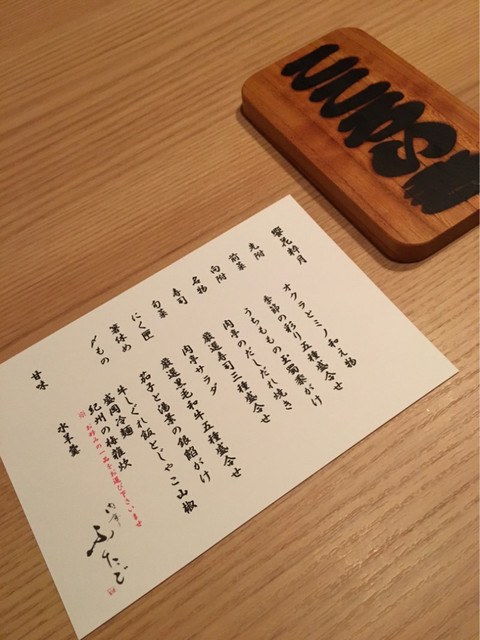 先附 オクラとミノ和え物
前菜 季節の彩り五種盛合せ
向附 うちももの玉蜀黍がけ
名物 肉亭のだしだれ焼き
寿司 厳選寿司三種盛合せ
旬菜 肉亭サラダ
にく匣 厳選黒毛和牛五種盛合せ
箸休め 茄子と湯葉の銀餡がけ
〆もの 牛しぐれ飯とじゃこ山椒
盛岡冷麺
紀州の梅雑炊
※お好みの一品をお選び下さいませ
甘味 水羊羹
肉亭ふたご